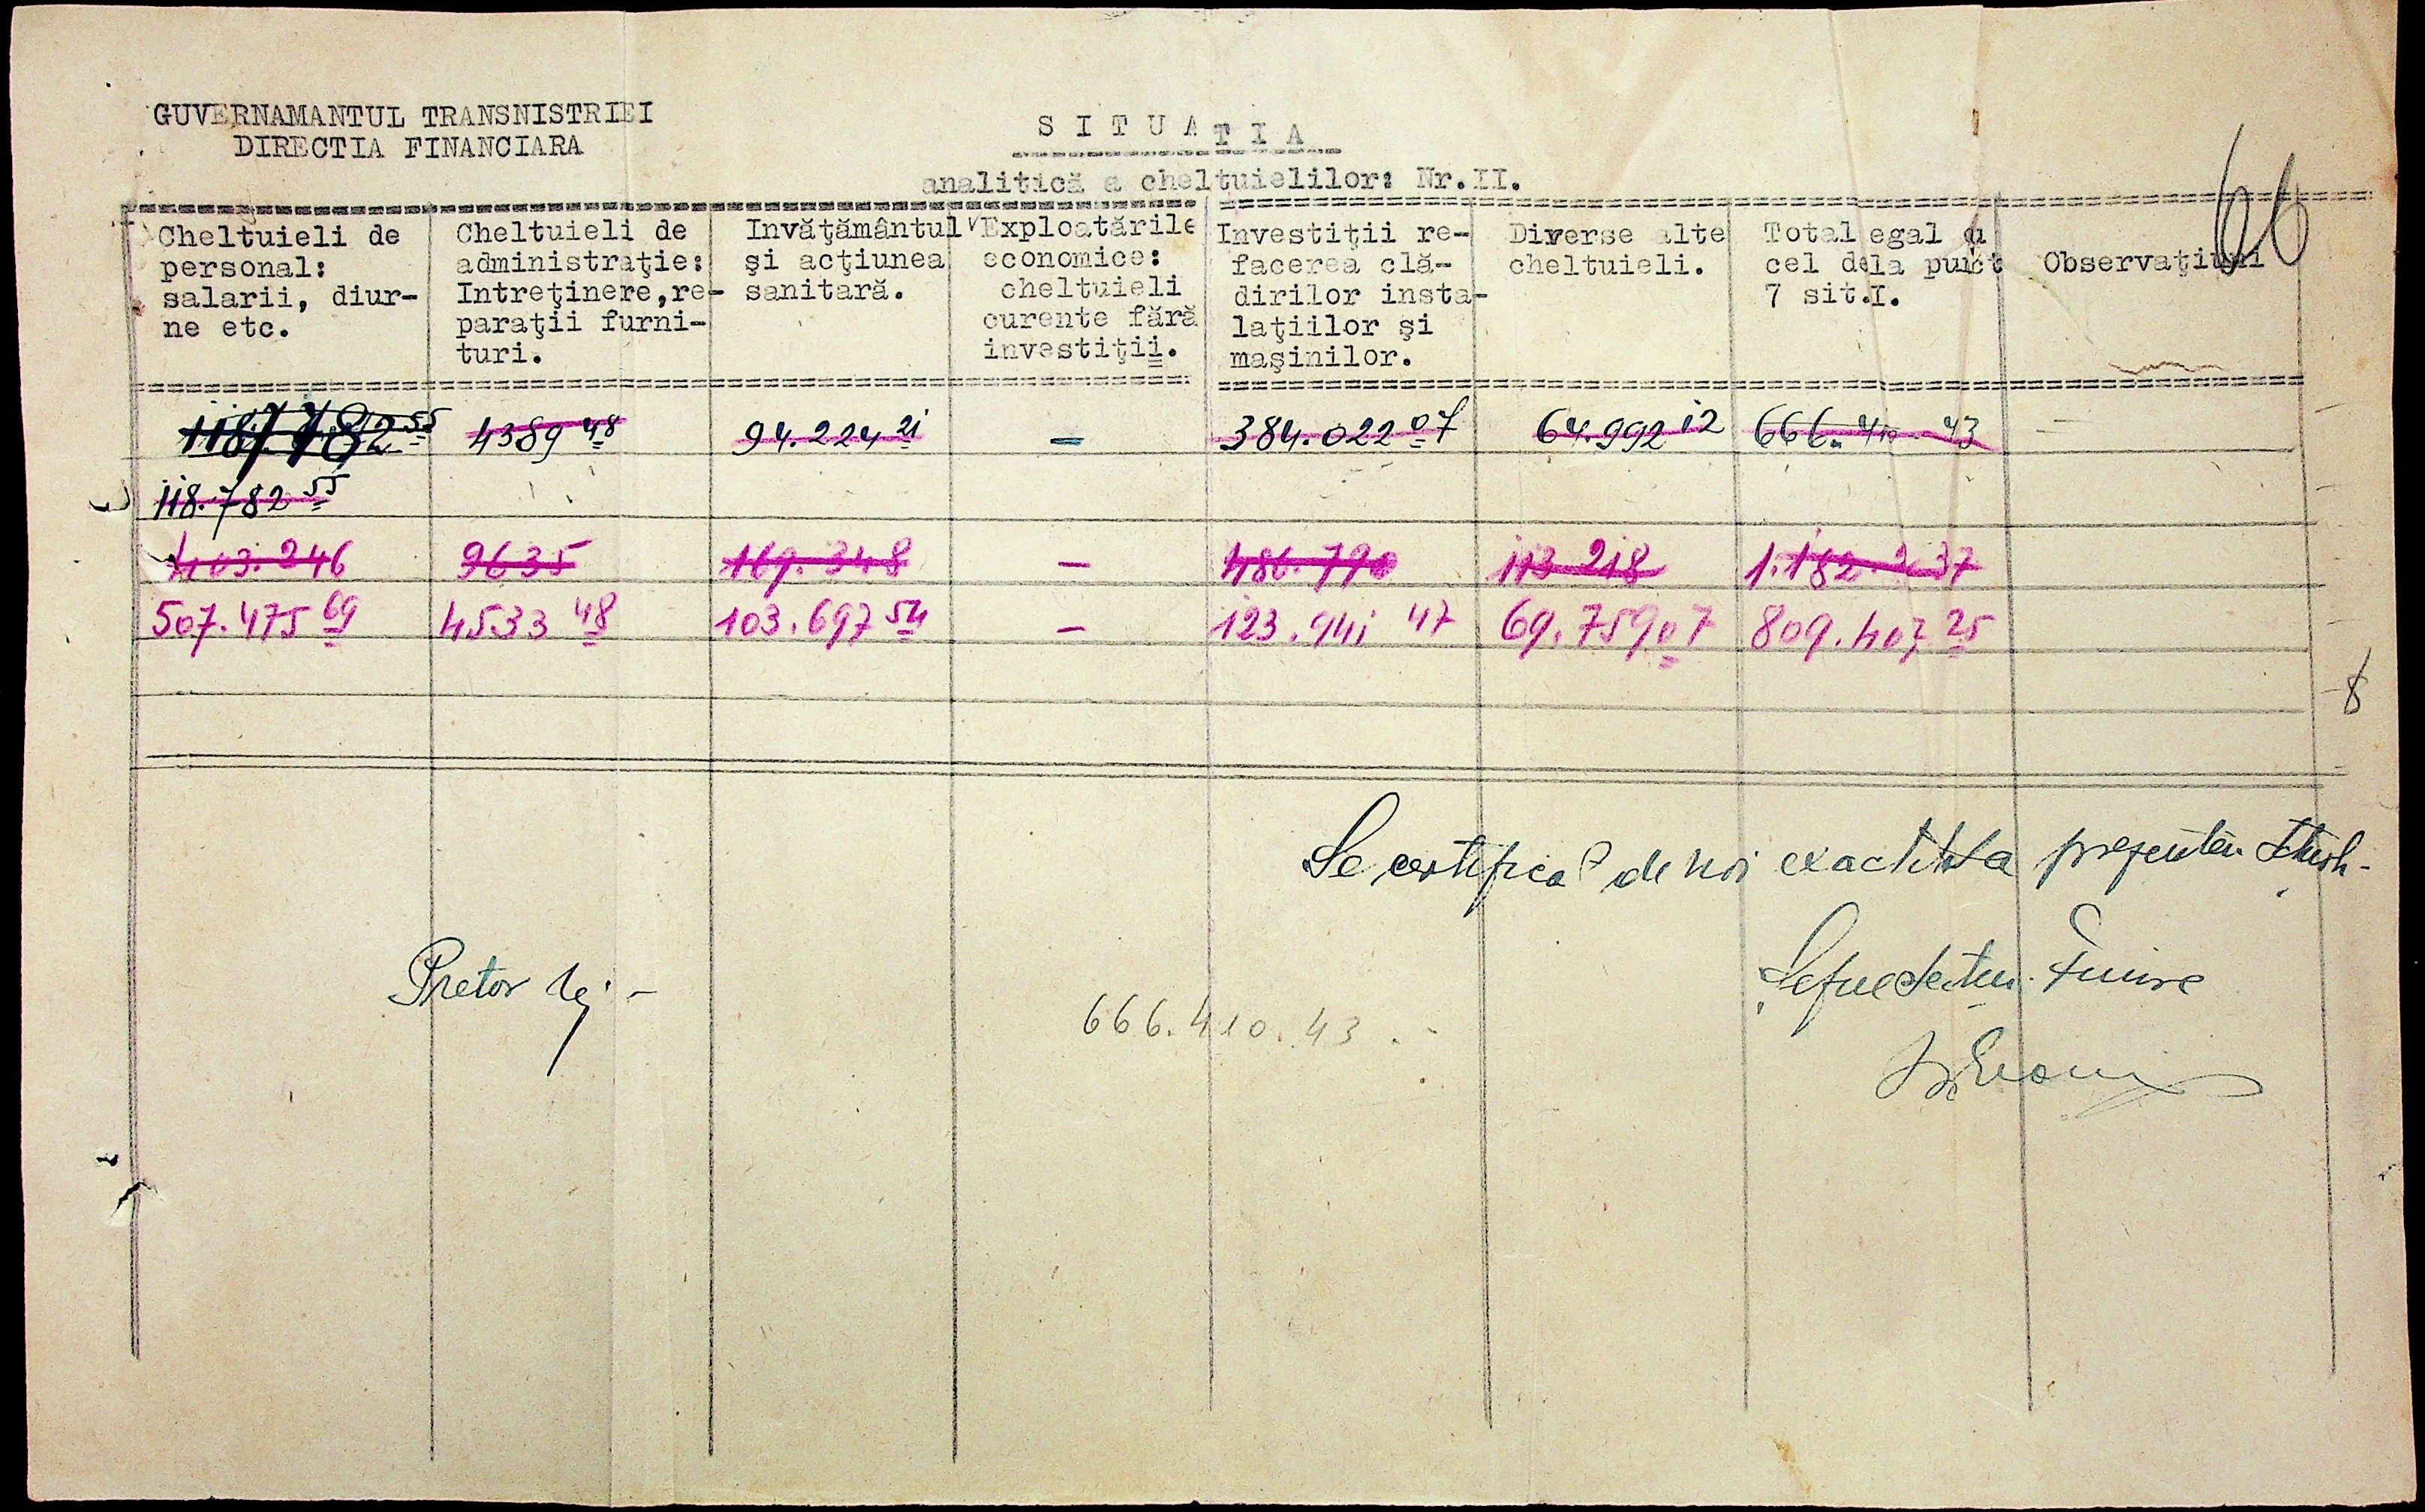 GUVERNAMANTUL TRANSNISTRIEI
DIRECTIA FINANCIARA
S I T U A T I A
analitică a cheltuielilor: Nr.II.
66
Cheltuieli de
personal:
salarii, diur-
ne etc.
Cheltuieli de
administraţie:
Intreţinere,re-
paraţii furni-
turi.
Invăţământul
şi acţiunea
sanitară.
Exploatările
economice:
cheltuieli
curente fără
investiţii.
Investiţii re-
facerea clă-
dirilor insta-
laţiilor şi
maşinilor.
Diverse alte
cheltuieli.
Total egal cu
cel dela punct
7 sit.I.
Observaţiuni
118.782 55 4389 48 94.224 21 – 384.022 07 64.992 12 666.410.43 –
118.782 55
403.246 9635 169.348 – 486.790 113.218 1.182.237
507.475 69 4533 48 103.697 54 – 123.941 47 69.759 07 809.407 25
8
Se certifica de noi exactitatea prezentei
Pretor
666.410.43